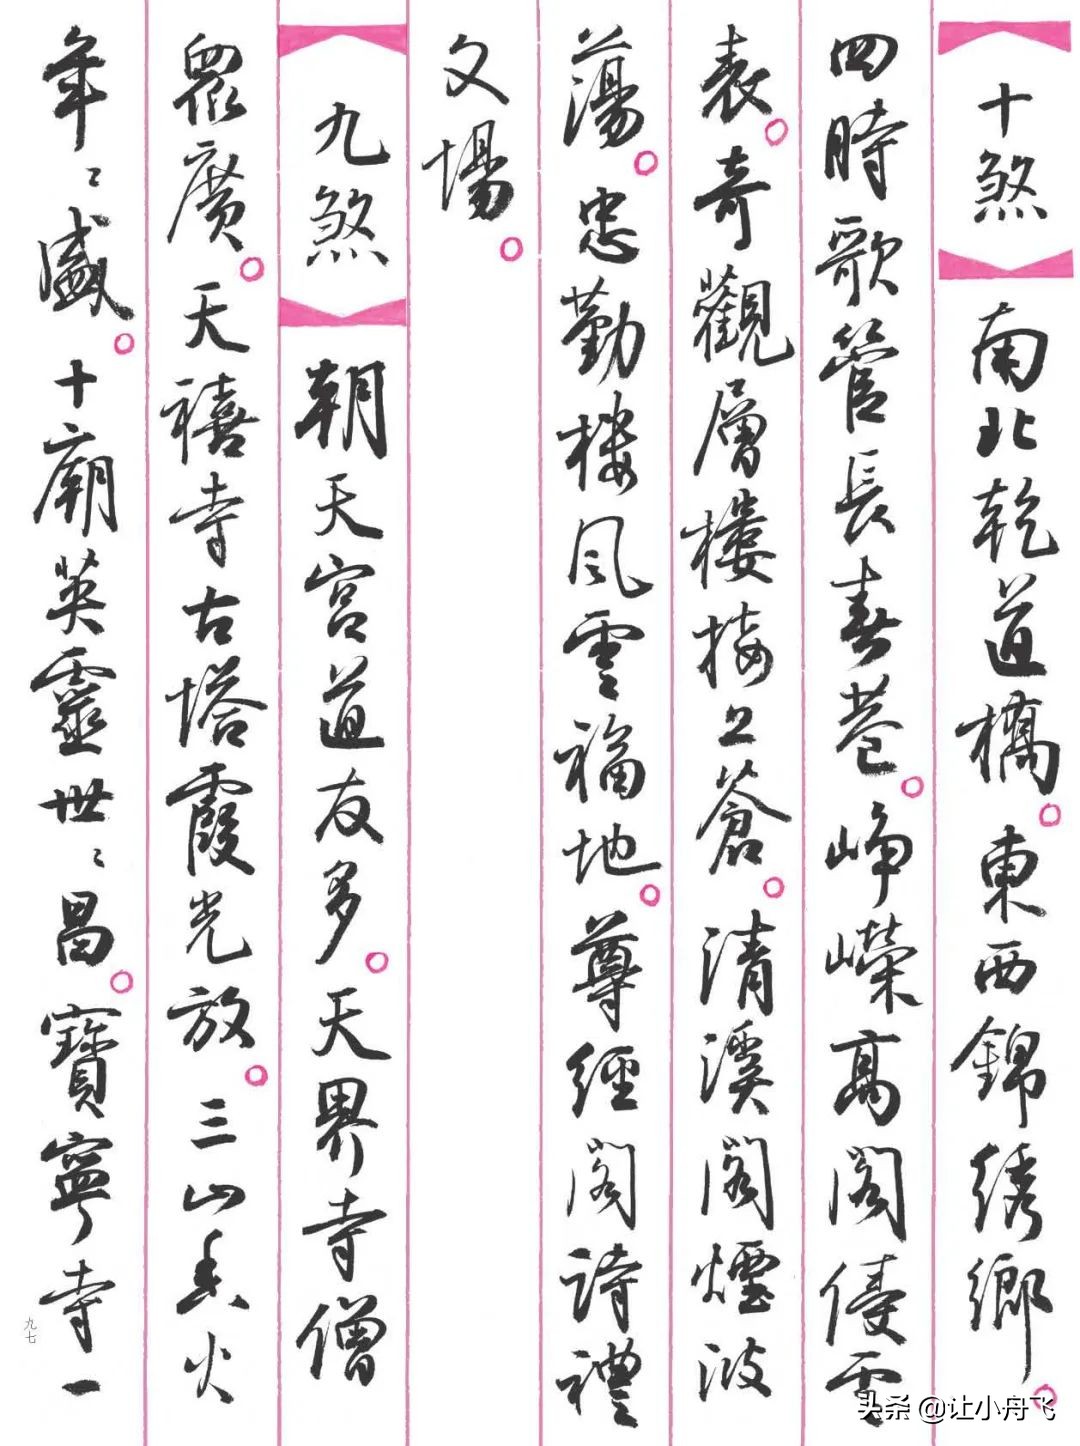 【十煞】南北乾道橋。東西錦綉鄉。
四時歌管長春巷。崢嶸高閣倚雲
表。奇觀層樓接上蒼。清溪閣煙波
蕩。忠勤樓風雲福地。尊經閣詩禮
文場。
【九煞】朝天宮道友多。天界寺僧
眾廣。天禧寺古塔霞光放。三山香火
年〻盛。十廟英靈世〻昌。寶寧寺一
九七
头条 @让小舟飞